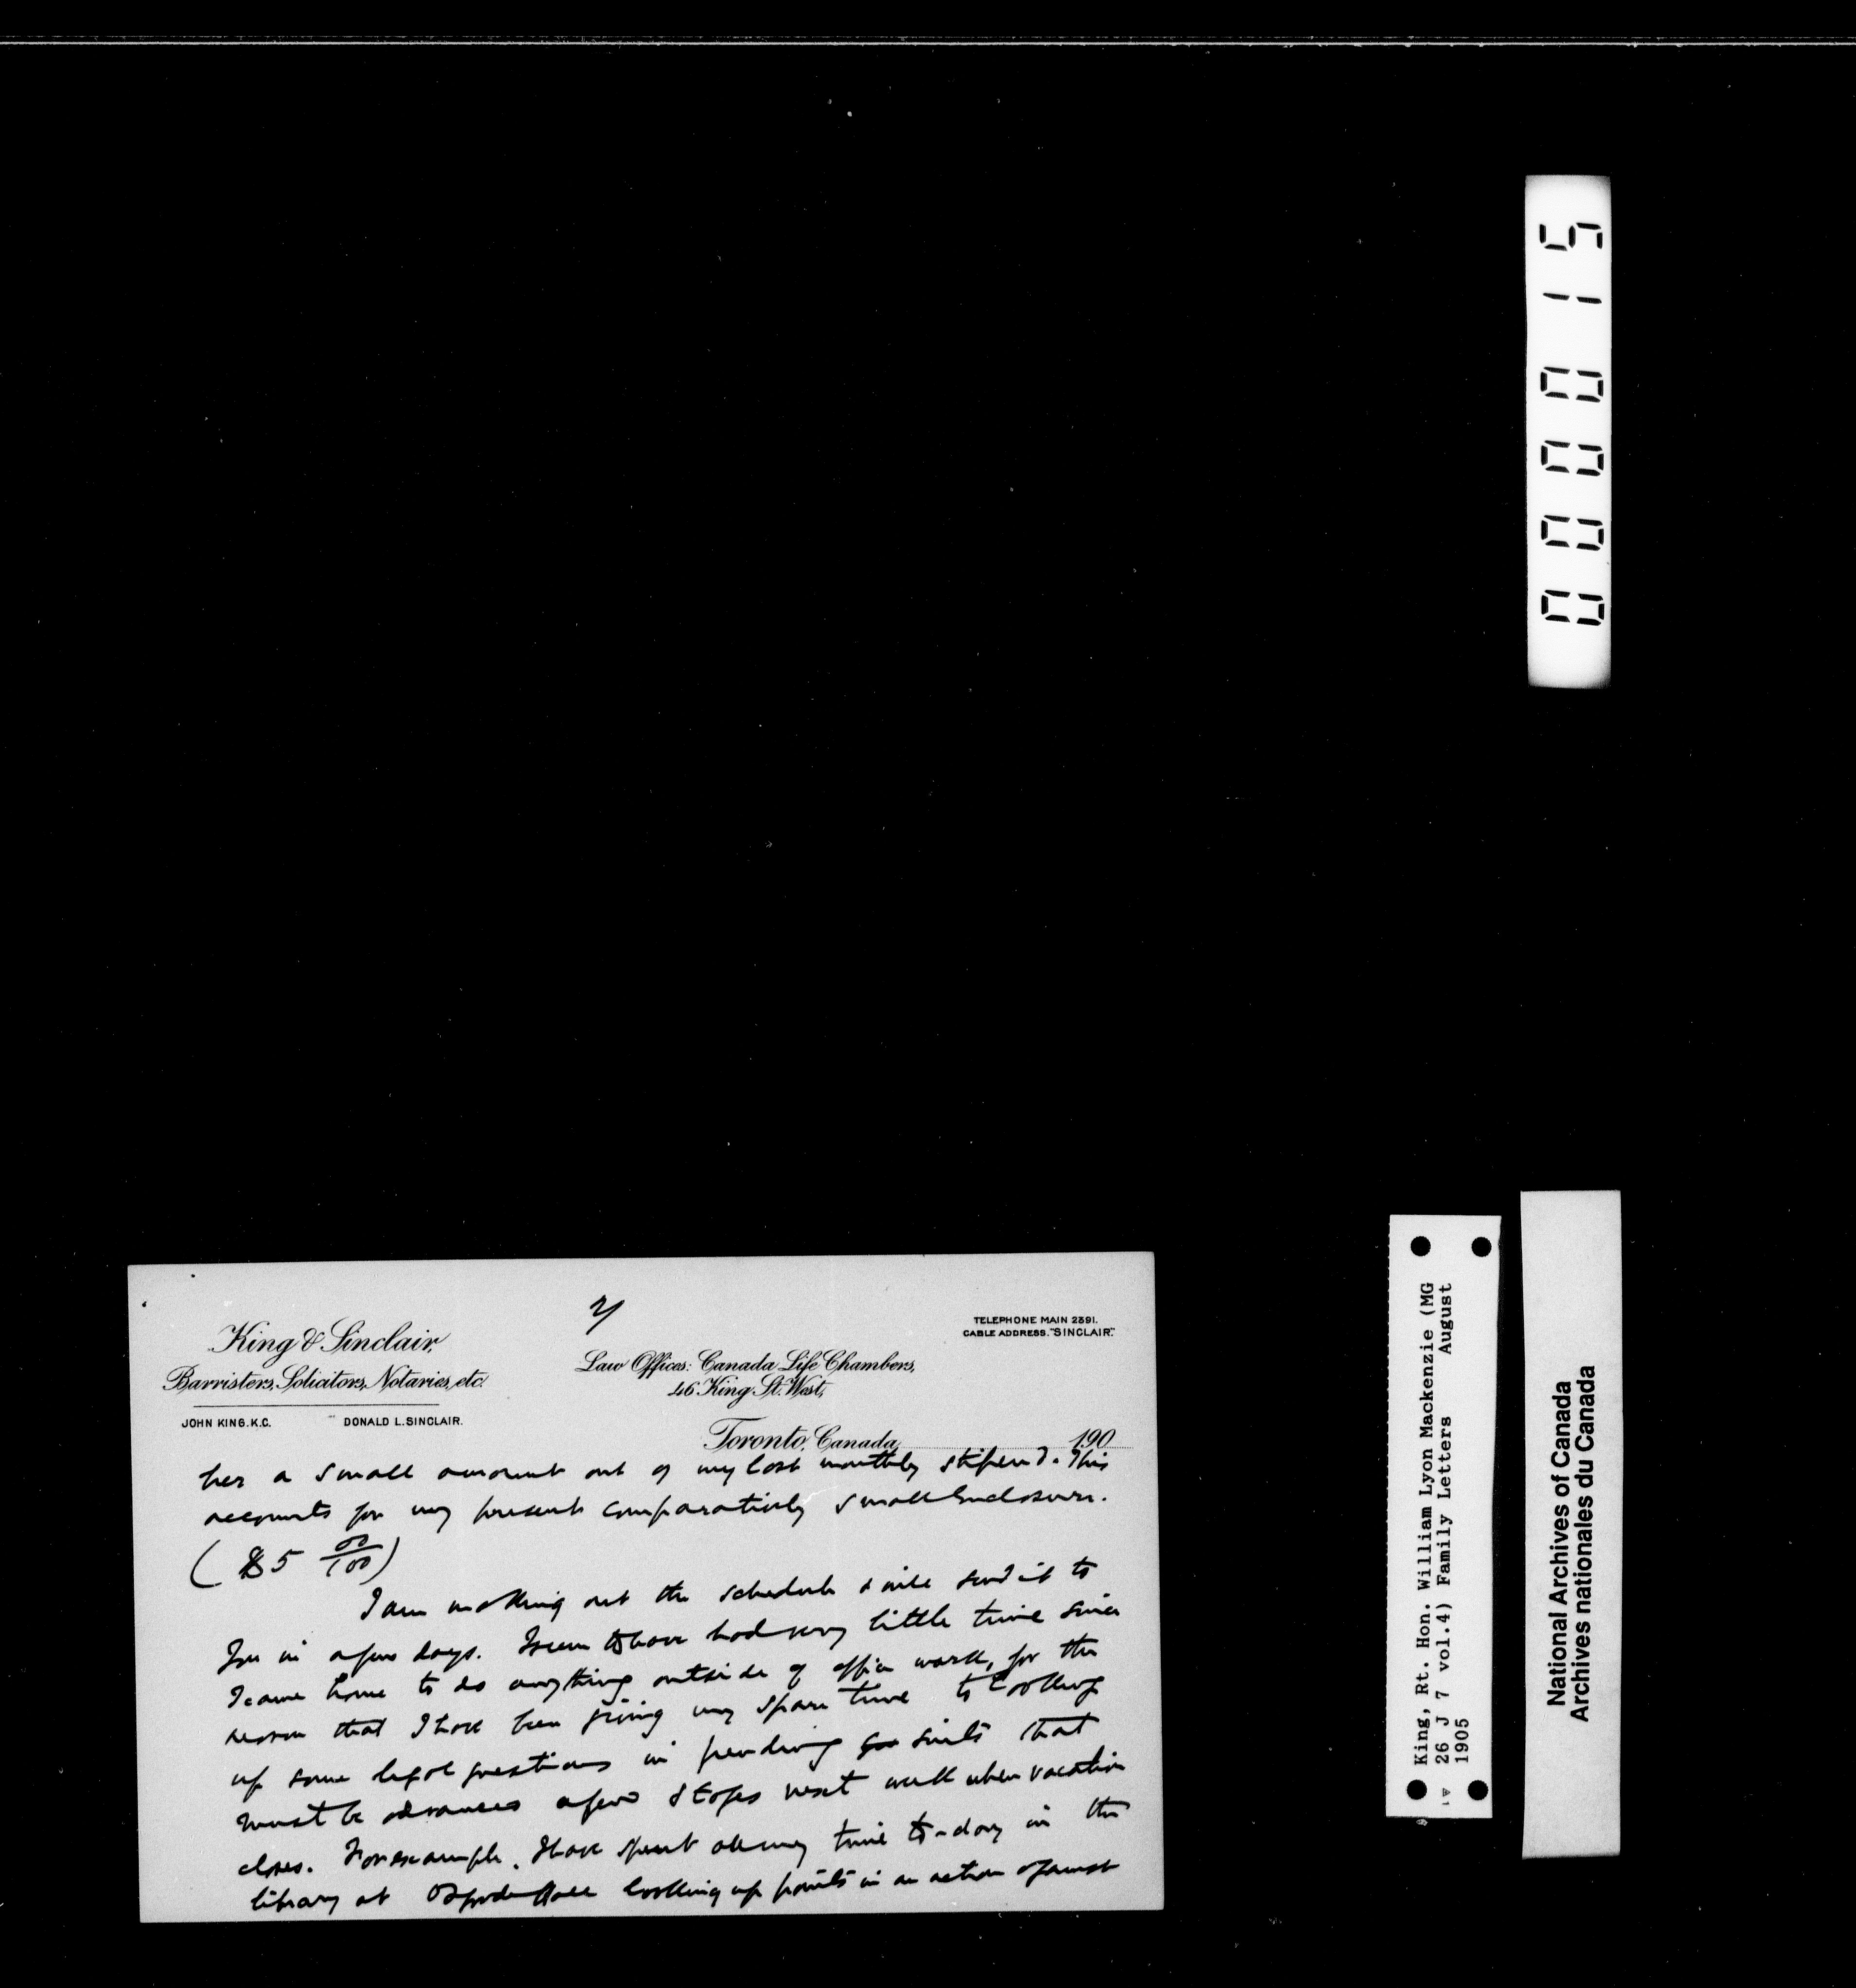 2/
King & Sinclair,
Barristers, Solicitors, Notaries, etc.
JOHN KING, K.C. DONALD L. SINCLAIR.
TELEPHONE MAIN 2391.
CABLE ADDRESS. "SINCLAIR."
Law Offices: Canada Life Chambers,
46 King St. West,
Toronto, Canada, 190
her a small amount out of my last monthly stipend. This
accounts for my present comparatively small enclosure.
($5 00/100)
I am making out the schedule & will send it to
you in a few days. I seem to have had very little time since
I came home to do anything outside of office work, for the
reason that I have been giving my spare time to looking
up some legal questions in pending suits that
must be advanced a few steps next week when vacation
closes. For example, I have spent all my time to-day in the
library at Osgoode Hall looking up points in an action against
000015
King, Rt. Hon. William Lyon Mackenzie (MG
26 J 7 vol.4) Family Letters August
1905
National Archives of Canada
Archives nationales du Canada